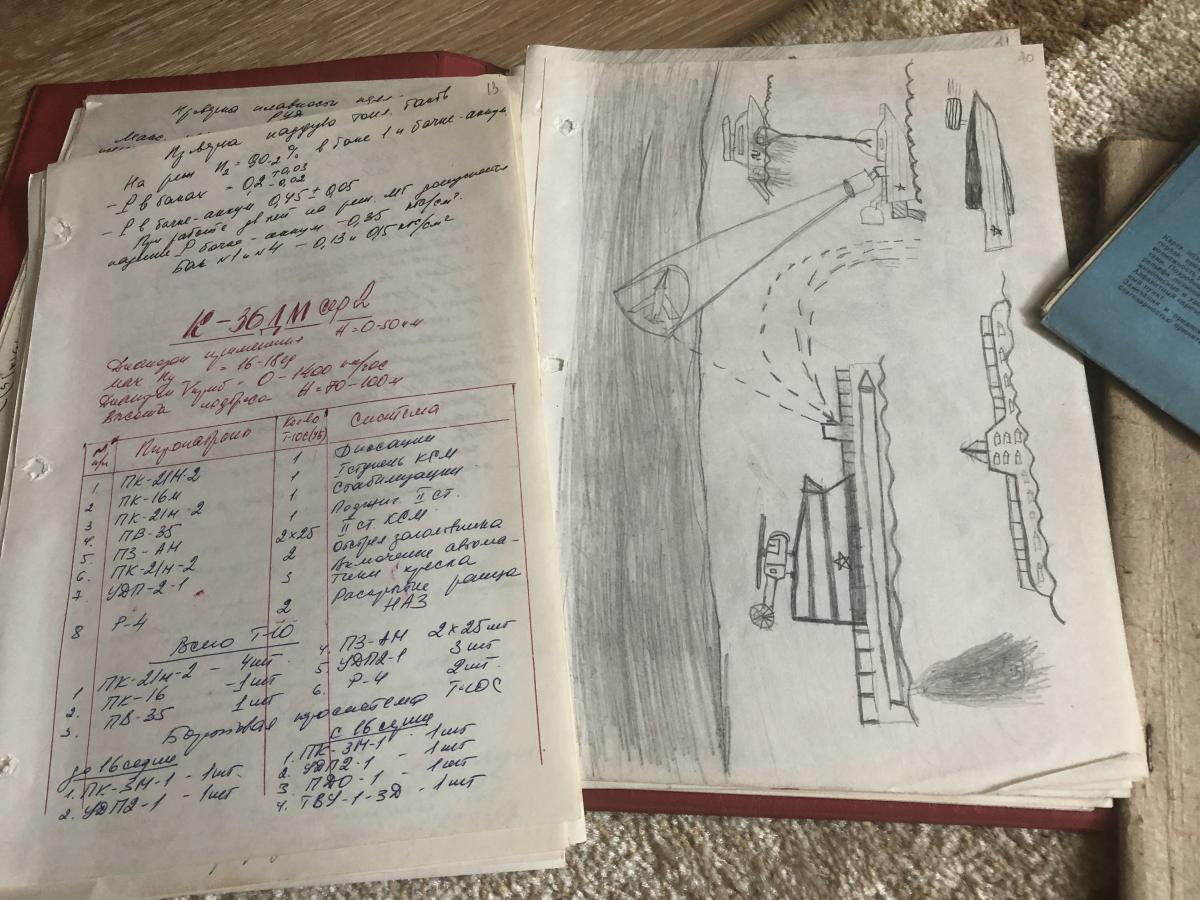 13
Проверка плавности
РУД
Макс.
Проверка наддува топл. баков
На реж n₂ = 90-2% в баке 1 и бачке-аккум.
- P в баках = 0,2 +0,03 -0,02
- P в бачке-аккум 0,45 ± 0,05
При работе дв на реж. МГ допускается
падение P бачке-аккум -0,35 кгс/см²
Бак №1 и №4 - 0,13 и 0,15 кгс/см²
К-36ДМ сер 2
Диапазон применения H=0-50км
мах ny = 16-18ед
Диапазон Vприб - 0-1400 км/час
Высота подброса H=70-100м
№ п/п Пиропатроны Кол-во Т-10С(УБ) Система
1. ПК-21М-2 1 Фиксации
2 ПК-16М 1 I ступень КСМ
3 ПК-21М-2 1 Стабилизации
4. ПВ-35 1 Поджиг II ст.
5. ПЗ-АМ 2×25 II ст. КСМ.
6. ПК-21М-2 2 Отстрел заголовника
7. УДП-2-1 3 Включение автома-
тики кресла
8 Р-4 2 Раскрытие ранца
НАЗ
Всего Т-10
1 ПК-21М-2 - 4шт.
2. ПК-16 -1шт
3. ПВ-35 1шт
4. ПЗ-АМ 2×25шт
5. УДП2-1 3шт
6. Р-4 2шт.
Бортовая система Т-10С
до 16 серии
1. ПК-3М-1 - 1шт.
2. УДП2-1 - 1шт
с 16 серии
1. ПК-3М-1 - 1шт
2. УДП2-1 - 1шт
3. ПДО-1 - 1шт
4. ТВУ-1-3Д - 1шт
11
40